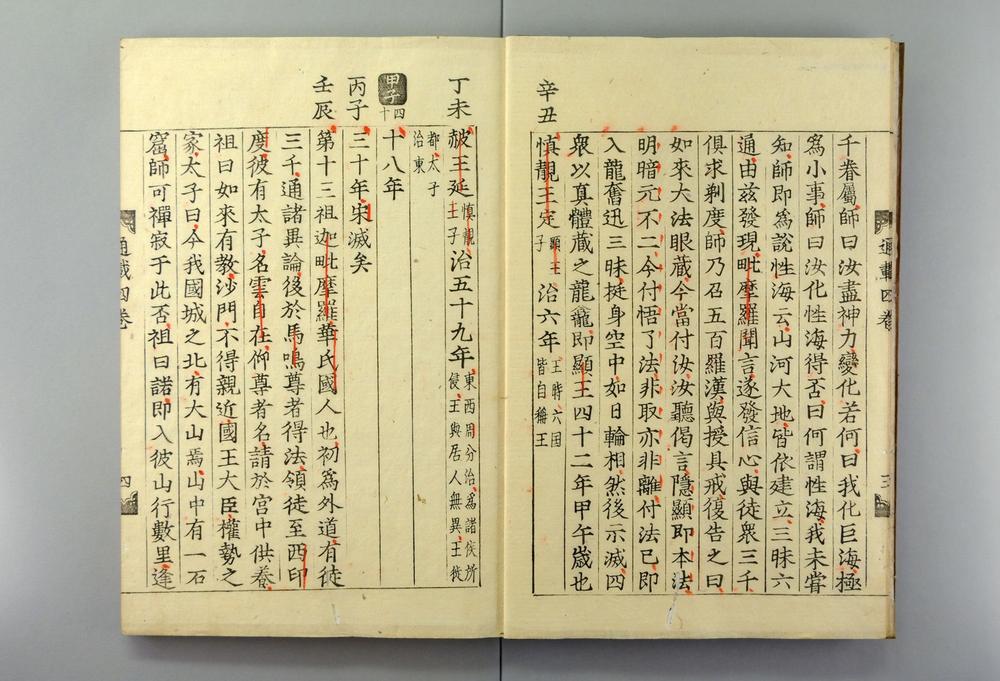 千眷屬師曰汝盡神力變化若何曰我化巨海極
爲小事師曰汝化性海得否曰何謂性海我未甞
知師即爲說性海云山河大地皆依建立三昧六
通由兹發現毗摩羅聞言遂發信心與徒衆三千
俱求剃度師乃召五百羅漢與授具戒復告之曰
如來大法眼藏今當付汝汝聽偈言隱顯即本法
明暗元不二今付悟了法非取亦非離付法已即
入龍奮迅三昧挺身空中如日輪相然後示滅四
衆以真體藏之龍龕即顯王四十二年甲午歲也
辛丑
慎靚王定顯王子治六年王時六国皆自稱王
通載四卷
三
丁未
赧王延慎靚王子治五十九年東西周分治爲諸侯所侵王與居人無異王徙
都太子治東
甲子
四十
十八年
丙子
三十年宋滅矣
壬辰
第十三祖迦毗摩羅華氏國人也初爲外道有徒
三千通諸異論後於馬鳴尊者得法領徒至西印
度彼有太子名雲自在仰尊者名請於宮中供養
祖曰如來有教沙門不得親近國王大臣權勢之
家太子曰今我國城之北有大山焉山中有一石
窟師可禪寂于此否祖曰諾即入彼山行數里逢
通載四卷
四